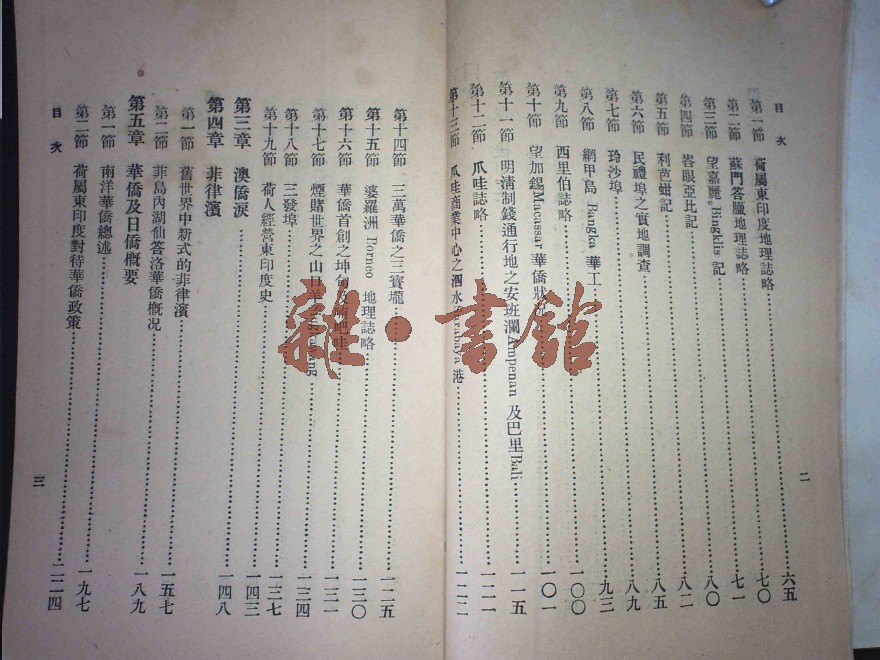 目次 二
第一節 荷屬東印度地理誌略 六五
第二節 蘇門答臘地理誌略 七〇
第三節 望嘉麗。Bingklis 記 七一
第四節 峇眼亞比記 八〇
第五節 利芭蚶記 八二
第六節 民禮埠之實地調查 八五
第七節 玲沙埠 八九
第八節 網甲島 Bangka 華工 九三
第九節 西里伯誌略 一〇〇
第十節 望加錫Macassar 華僑狀況 一〇一
第十一節 明清制錢通行地之安班瀾Ampenan 及巴里Bali 一一五
第十二節 爪哇誌略 一二一
第十三節 爪哇商業中心之泗水Surabaya 港 一二二
第十四節 三萬華僑之三寶壠 一二五
第十五節 婆羅洲 Borneo 地理誌略 一三〇
第十六節 華僑首創之坤甸及喃吧哇 一三一
第十七節 煙賭世界之山口羊 一三四
第十八節 三發埠 一三七
第十九節 荷人經營東印度史 一四三
第三章 澳僑淚 一四八
第四章 菲律濱
第一節 舊世界中新式的菲律濱 一五七
第二節 菲島內湖仙答洛華僑概況 一八九
第五章 華僑及日僑概要
第一節 南洋華僑總述 一九七
第二節 荷屬東印度對待華僑政策 二二四
目次 三
雜·書館